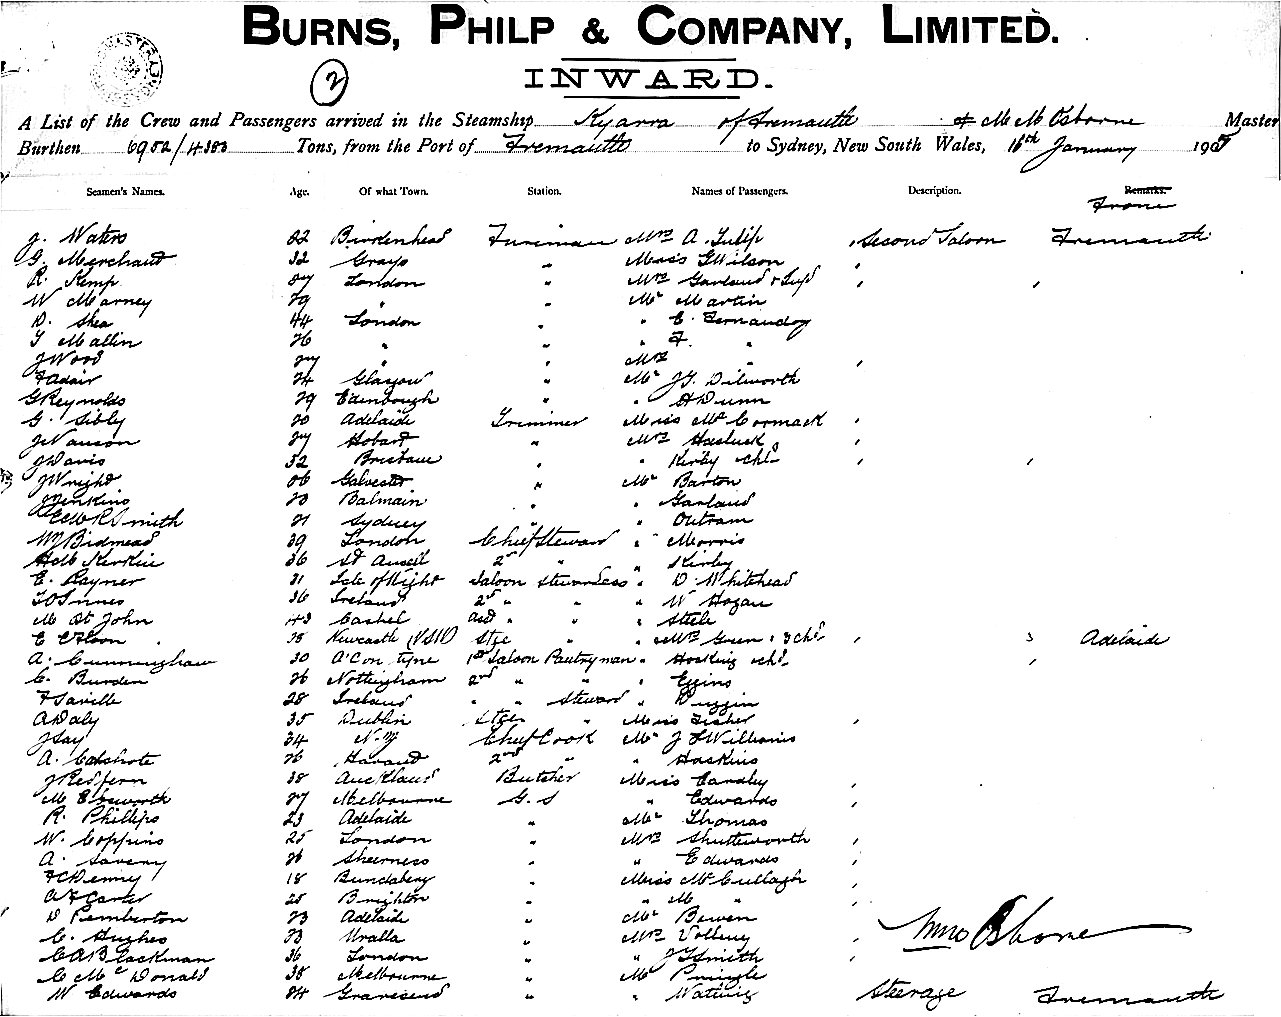 BURNS, PHILP & COMPANY, LIMITED.
2
INWARD.
A List of the Crew and Passengers arrived in the Steamship Kyarra of Fremantle M M Osborne Master
Burthen 6952/4383 Tons, from the Port of Fremantle to Sydney, New South Wales, 16th January 190
Seamen's Names. Age. Of what Town. Station. Names of Passengers. Description. Remarks.
From
J. Waters 32 Birkenhead Fireman Mrs A. Tulip Second Saloon Fremantle
G. Merchant 32 Grays " Miss Wilson
R. Kemp 27 London " Mrs Garland & Inft
W Marney 29 " " Mr Martin
D. Shea 44 London " " C. Fernandez
T Mallin 26 " " " F. "
J Wood 27 " " Mrs "
F Adair 24 Glasgow " Mr J.T. Dilworth
G Reynolds 29 Edinburgh " " H Dunn
G. Sibly 20 Adelaide Trimmer Miss McCormack
J Nauson 27 Hobart " Mrs Hasluck
J Davis 32 Brisbane " " Kirby chd
J Wright 26 " Mr Barton
J Jenkins 20 Balmain " " Garland
Smith 21 Sydney " " Outram
W Bidmead 39 London Chief Steward " Morris
Kerkin 36 St Austell 2nd " " Kirby
E. Rayner 31 Isle of Wight Saloon Stewardess " D. Whitehead
Innes 36 Ireland 2nd " " " W Hogan
M St John 43 Cashel " " " Steele
C 28 Newcastle (NSW) Stge " " Mrs Green & 3 chd Adelaide
A. Cunninghaw 30 tyne 1st Saloon Pantryman " Hosking chd
C. Burden 26 Nottingham 2nd " " " Eggins
F Saville 28 Ireland " " Steward " Duggin
A Daly 35 Dublin Stge " Miss Fisher
J Say 34 N.Z Chief Cook Mr J Williams
A. Calshote 26 Havant 2nd " " Haskins
J Redfern 38 Auckland Butcher Miss Candly
M Elsworth 27 Melbourne G.S " Edwards
R. Phillips 23 Adelaide " Mr Thomas
W. Coppins 25 London " Mrs Shuttleworth
A. Saveny 26 Sheerness " " Edwards
F C Denny 18 Bundaberg " Miss McCullagh
A F Carter 25 Brighton " " M "
D Pemberton 23 Adelaide " Mr Bowen
C. Hughes 23 Uralla " Mrs
C A Blackman 36 London " " J T Smith
C McDonald 38 Melbourne " Mr Pringle
W Edwards 24 Gravesend " " Watling Steerage Fremantle
M M Osborne